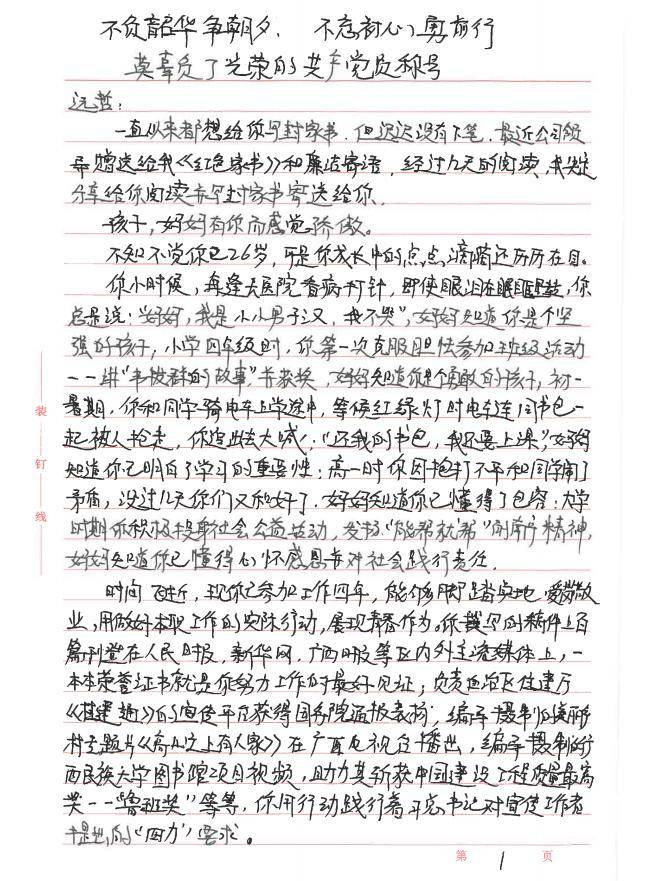 不负韶华争朝夕、不忘初心勇前行
莫辜负了光荣的共产党员称号
远哲：
一直以来都想给你写封家书，但迟迟没有下笔，最近公司领
导赠送给我《红色家书》和廉洁寄语，经过几天的阅读，我决定
分享给你阅读并写封家书寄送给你。
孩子，妈妈有你而感觉骄傲。
不知不觉你已26岁，可是你成长中的点点滴滴还历历在目。
你小时候，每逢去医院看病打针，即使眼泪在眼眶里转，你
总是说："妈妈，我是小小男子汉，我不哭"，妈妈知道你是个坚
强的孩子，小学四年级时，你第一次克服胆怯参加班级活动
--讲"韦拔群的故事"并获奖，妈妈知道你是个勇敢的孩子，初一
暑期，你和同学骑电车上学途中，等候红绿灯时电车连同书包一
起被人抢走，你追出去大喊："还我的书包，我还要上课"，妈妈
知道你已明白了学习的重要性；高一时你因抱打不平和同学闹了
矛盾，没过几天你们又和好了，妈妈知道你已懂得了包容；大学
时期你积极投身社会公益活动，发扬"能帮就帮"的南宁精神，
妈妈知道你已懂得心怀感恩并对社会践行责任。
时间飞逝，现你已参加工作四年，能够脚踏实地、爱岗敬
业，用做好本职工作的实际行动，展现青春作为。你撰写的稿件上百
篇刊登在人民日报、新华网、广西日报等区内外主流媒体上，一
本本荣誉证书就是你努力工作的最好见证；负责自治区住建厅
的宣传平台获得国务院通报表扬；编导摄制的美丽
村专题片在广西电视台播出，编导摄制的广
西民族大学图书馆项目视频，助力其斩获中国建设工程质量最高
奖--"鲁班奖"等等，你用行动践行着习总书记对宣传工作者
提出的"四力"要求。
装
钉
线
第 1 页